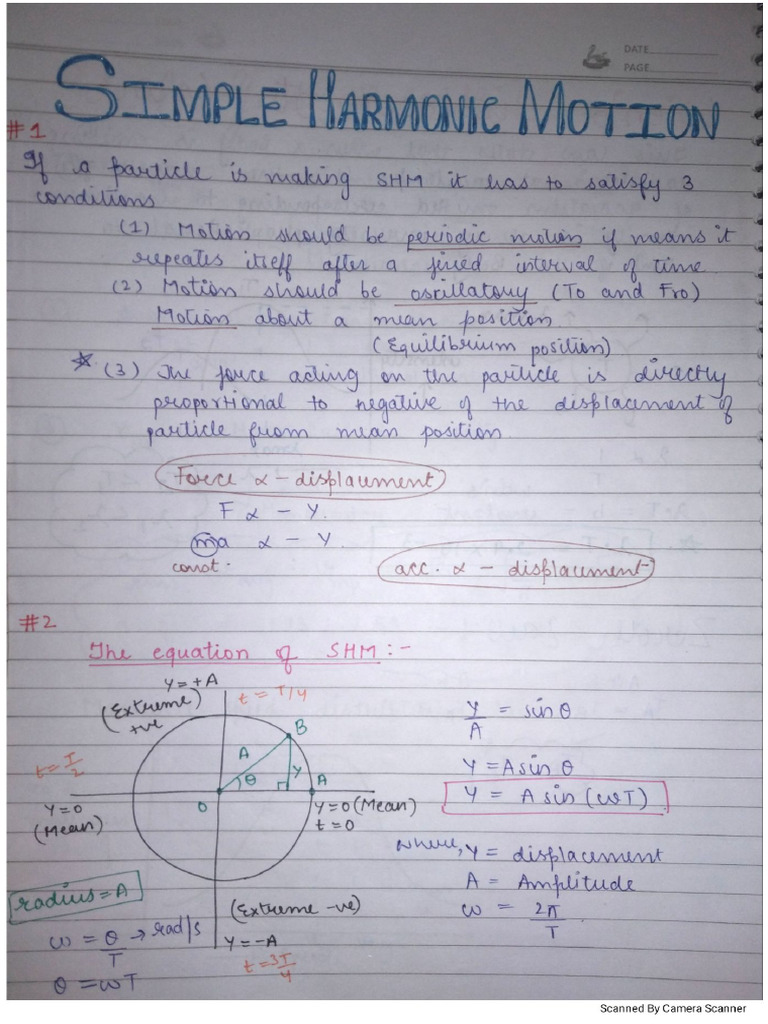 DATE
PAGE
SIMPLE HARMONIC MOTION
#1
If a particle is making SHM it has to satisfy 3
conditions
(1) Motion should be periodic motion if means it
repeates itself after a fixed interval of time
(2) Motion should be oscillatory (To and Fro)
Motion about a mean position
(Equilibrium position)
* (3) The force acting on the particle is directly
proportional to negative of the displacement of
particle from mean position.
Force α - displacement
F α - Y.
ma α - Y.
const.
acc. α - displacement
#2
The equation of SHM :-
Y=+A
(Extreme)
+ve
t = T/4
B
A
Y
θ
A
O
t = T/2
Y=0
(Mean)
Y=0 (Mean)
t=0
(Extreme -ve)
Y=-A
t = 3T/4
radius = A
ω = θ/T → rad/s
θ = ωT
Y/A = sinθ
Y = A sinθ
Y = A sin (ωT)
where, Y = displacement
A = Amplitude
ω = 2π/T
Scanned By Camera Scanner